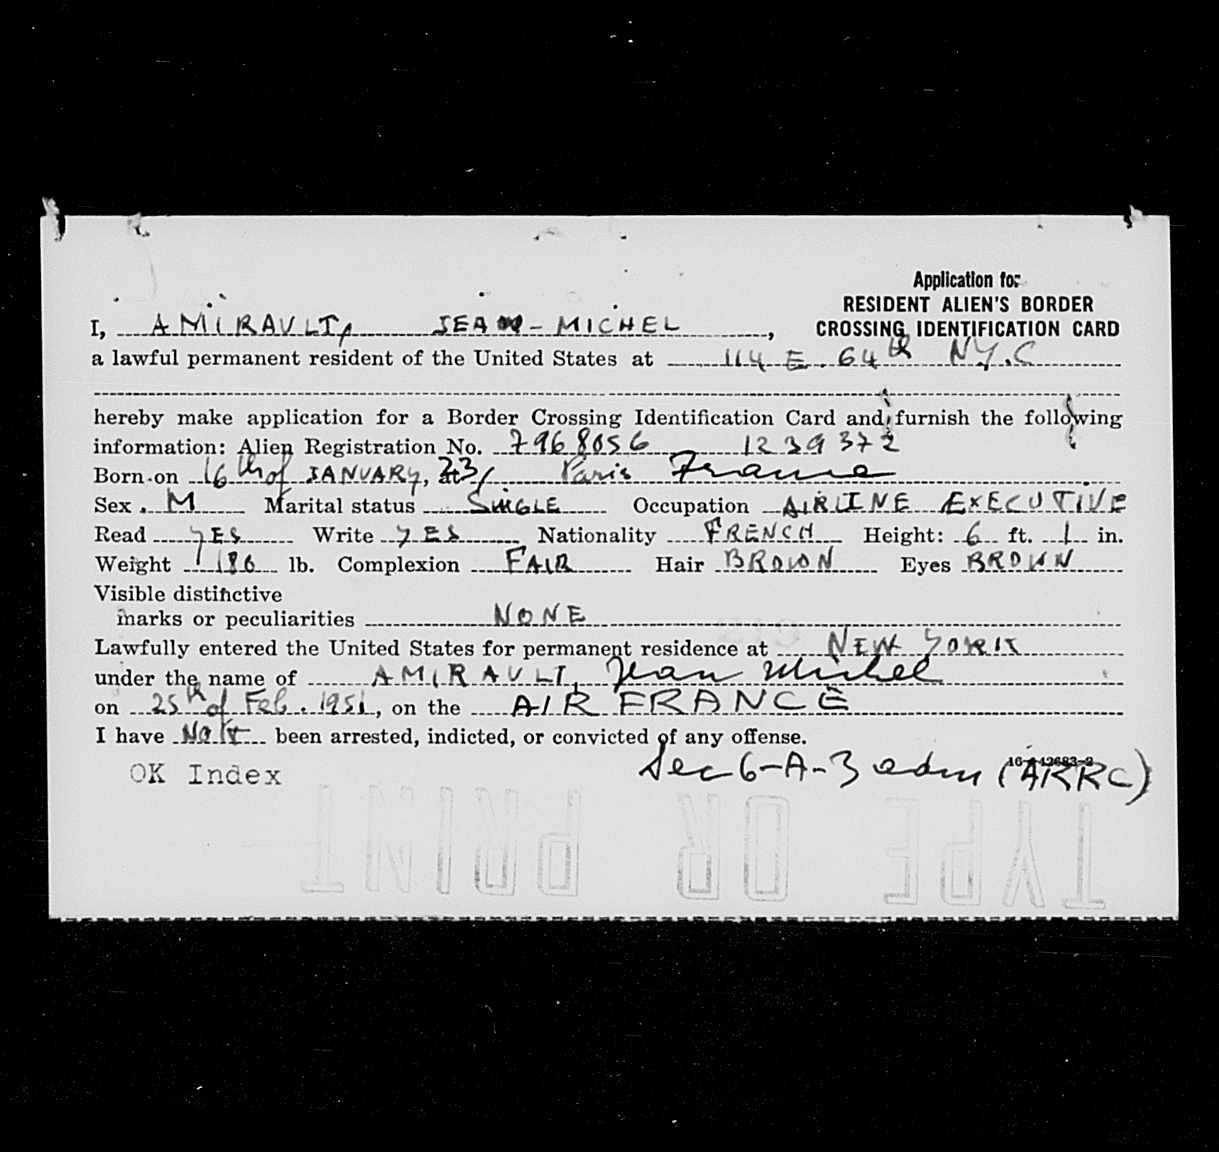 Application for
RESIDENT ALIEN'S BORDER
CROSSING IDENTIFICATION CARD
I, AMIRAULT, JEAN-MICHEL,
a lawful permanent resident of the United States at 114 E. 64th N.Y.C
hereby make application for a Border Crossing Identification Card and furnish the following
information: Alien Registration No. 7968056 1239372
Born on 16th of JANUARY, 23, Paris France
Sex M Marital status SINGLE Occupation AIRLINE EXECUTIVE
Read YES Write YES Nationality FRENCH Height: 6 ft. 1 in.
Weight 186 lb. Complexion FAIR Hair BROWN Eyes BROWN
Visible distinctive
marks or peculiarities NONE
Lawfully entered the United States for permanent residence at NEW YORK
under the name of AMIRAULT, Jean Michel
on 25th of Feb. 1951, on the AIR FRANCE
I have Not been arrested, indicted, or convicted of any offense.
OK Index Sec 6-A-3 adm (ARRC)
TYPE OR PRINT